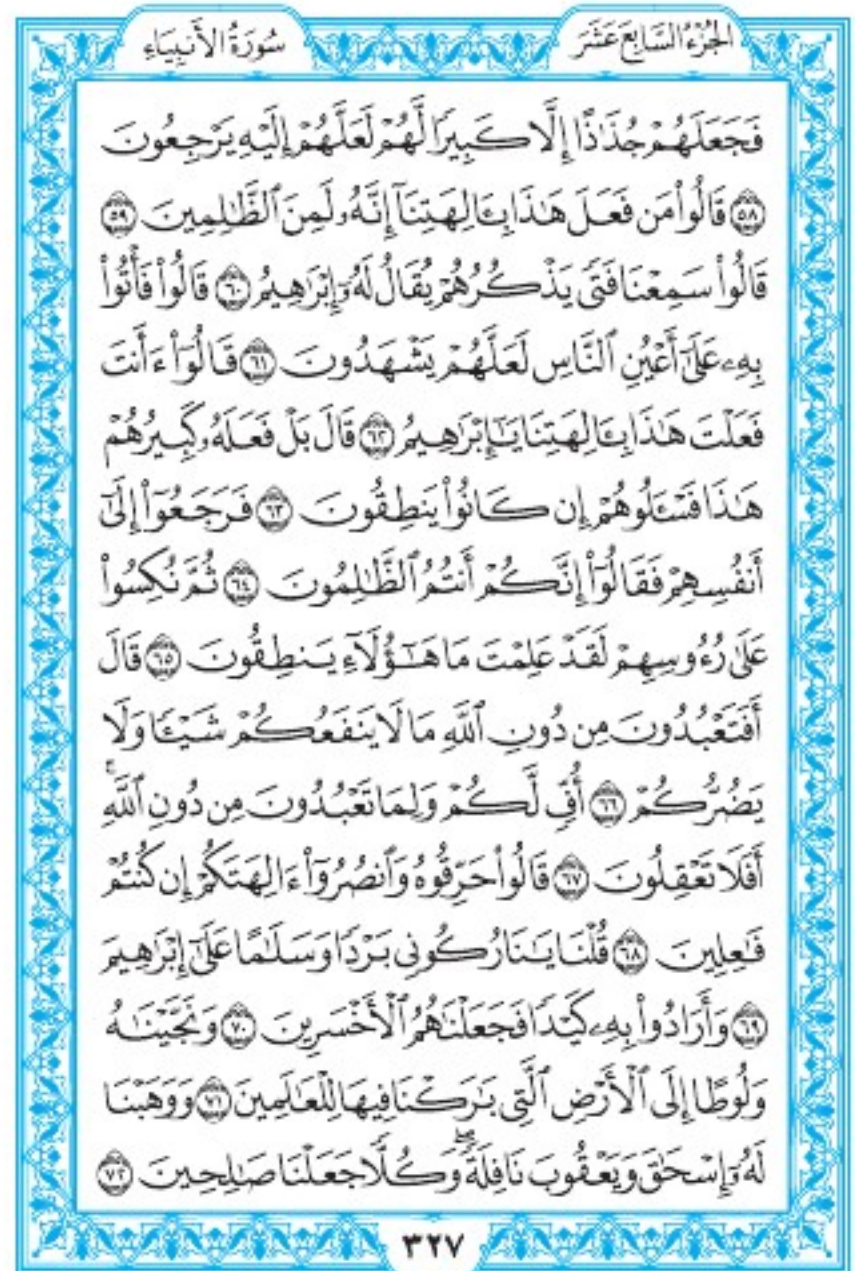 الجُزْءُ السَّابِعَ عَشَرَ
سُورَةُ الأَنبِيَاءِ
فَجَعَلَهُمْ جُذَٰذًا إِلَّا كَبِيرًا لَّهُمْ لَعَلَّهُمْ إِلَيْهِ يَرْجِعُونَ
٥٨ قَالُوا۟ مَن فَعَلَ هَٰذَا بِـَٔالِهَتِنَآ إِنَّهُۥ لَمِنَ ٱلظَّٰلِمِينَ ٥٩
قَالُوا۟ سَمِعْنَا فَتًى يَذْكُرُهُمْ يُقَالُ لَهُۥٓ إِبْرَٰهِيمُ ٦٠ قَالُوا۟ فَأْتُوا۟
بِهِۦ عَلَىٰٓ أَعْيُنِ ٱلنَّاسِ لَعَلَّهُمْ يَشْهَدُونَ ٦١ قَالُوٓا۟ ءَأَنتَ
فَعَلْتَ هَٰذَا بِـَٔالِهَتِنَا يَٰٓإِبْرَٰهِيمُ ٦٢ قَالَ بَلْ فَعَلَهُۥ كَبِيرُهُمْ
هَٰذَا فَسْـَٔلُوهُمْ إِن كَانُوا۟ يَنطِقُونَ ٦٣ فَرَجَعُوٓا۟ إِلَىٰٓ
أَنفُسِهِمْ فَقَالُوٓا۟ إِنَّكُمْ أَنتُمُ ٱلظَّٰلِمُونَ ٦٤ ثُمَّ نُكِسُوا۟
عَلَىٰ رُءُوسِهِمْ لَقَدْ عَلِمْتَ مَا هَٰٓؤُلَآءِ يَنطِقُونَ ٦٥ قَالَ
أَفَتَعْبُدُونَ مِن دُونِ ٱللَّهِ مَا لَا يَنفَعُكُمْ شَيْـًٔا وَلَا
يَضُرُّكُمْ ٦٦ أُفٍّ لَّكُمْ وَلِمَا تَعْبُدُونَ مِن دُونِ ٱللَّهِ ۚ
أَفَلَا تَعْقِلُونَ ٦٧ قَالُوا۟ حَرِّقُوهُ وَٱنصُرُوٓا۟ ءَالِهَتَكُمْ إِن كُنتُمْ
فَٰعِلِينَ ٦٨ قُلْنَا يَٰنَارُ كُونِى بَرْدًا وَسَلَٰمًا عَلَىٰٓ إِبْرَٰهِيمَ
٦٩ وَأَرَادُوا۟ بِهِۦ كَيْدًا فَجَعَلْنَٰهُمُ ٱلْأَخْسَرِينَ ٧٠ وَنَجَّيْنَٰهُ
وَلُوطًا إِلَى ٱلْأَرْضِ ٱلَّتِى بَٰرَكْنَا فِيهَا لِلْعَٰلَمِينَ ٧١ وَوَهَبْنَا
لَهُۥٓ إِسْحَٰقَ وَيَعْقُوبَ نَافِلَةً ۖ وَكُلًّا جَعَلْنَا صَٰلِحِينَ ٧٢
٣٢٧